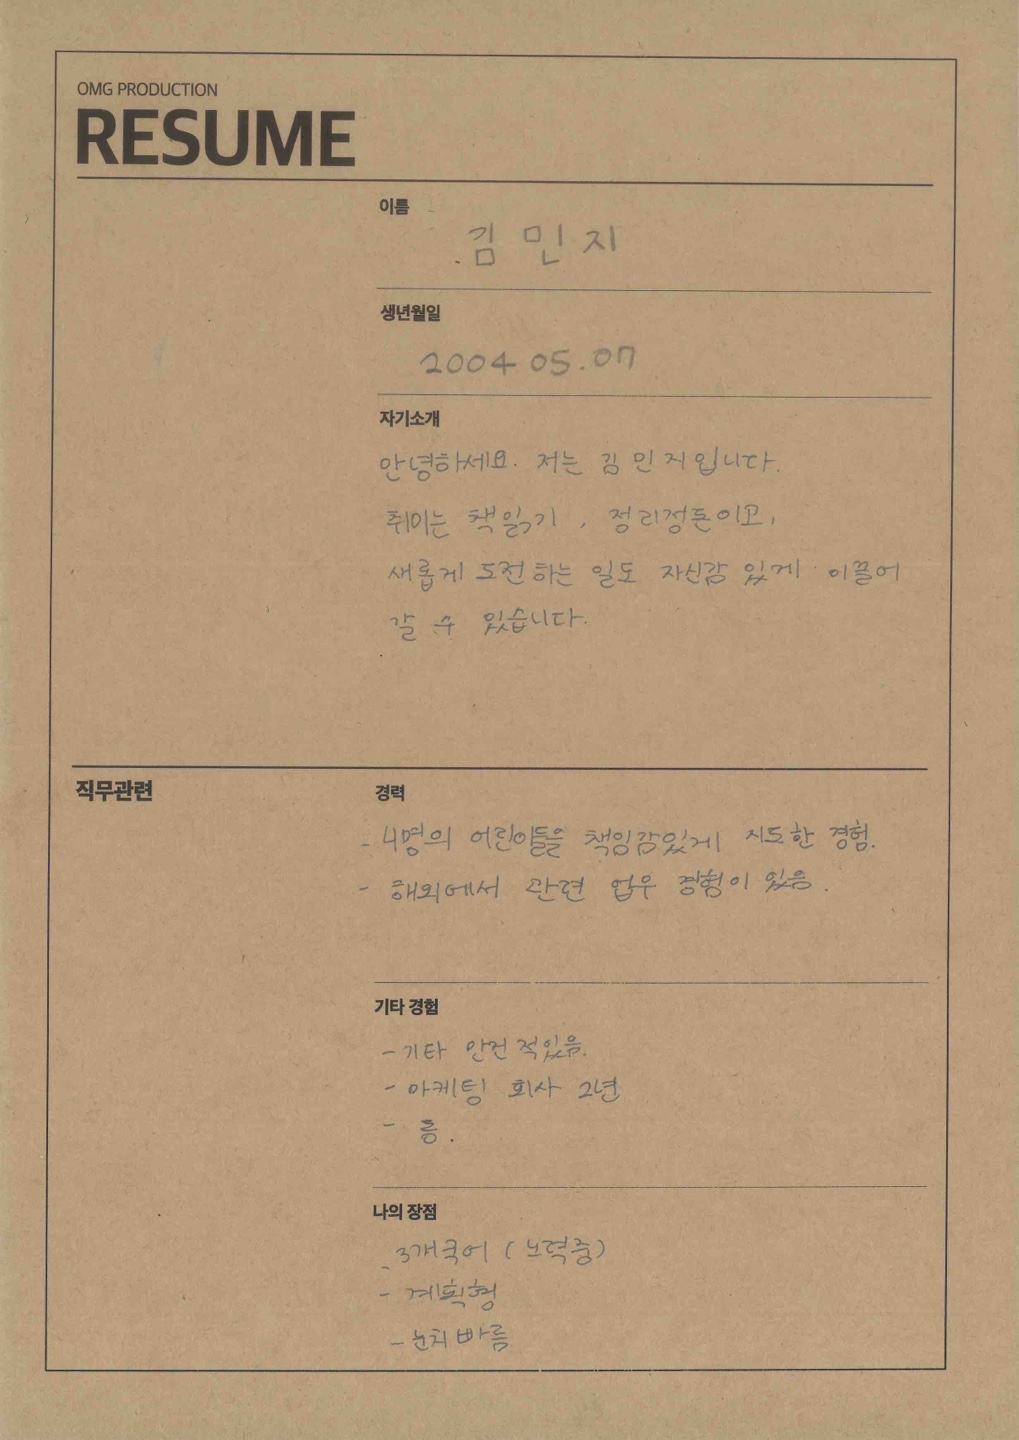 OMG PRODUCTION
RESUME
이름
김민지
생년월일
2004 05.07
자기소개
안녕하세요. 저는 김민지입니다.
취미는 책읽기, 정리정돈이고,
새롭게 도전하는 일도 자신감 있게 이끌어
갈 수 있습니다.
직무관련
경력
- 4명의 어린이들을 책임감있게 지도한 경험.
- 해외에서 관련 업무 경험이 있음.
기타 경험
- 기타 안전 적있음.
- 마케팅 회사 2년
- 흠.
나의 장점
- 3개국어 (노력중)
- 계획형
- 눈치빠름